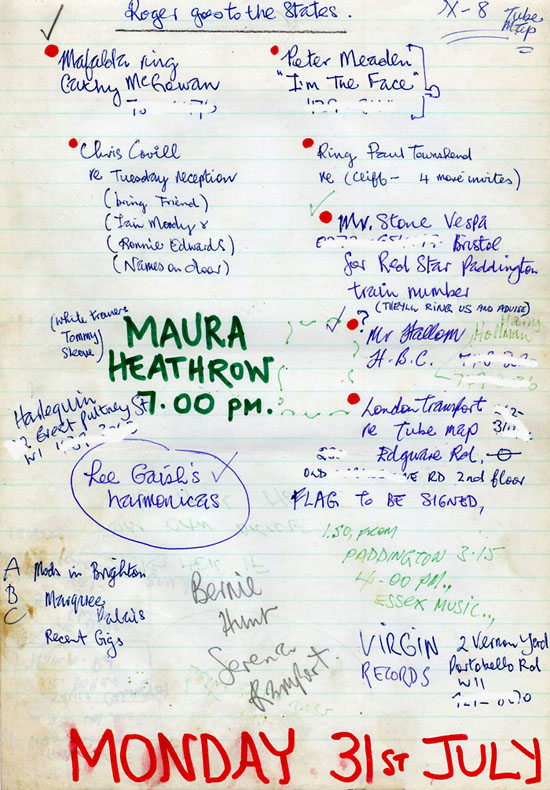 Roger goes to the States.
X-8 Tube
Map
Mafalda ring
Cathy McGowan
Peter Meaden
"I'm The Face"
Chris Covill
re Tuesday reception
(bring Friend)
(Iain Moody &
(Ronnie Edwards)
(Names on door)
Ring Paul Townshend
re (Cliff - 4 more invites)
Mr. Stone Vespa
Bristol
for Red Star Paddington
train number
(THEY'LL RING US AND ADVISE)
? Mr Hallom
Harry
Hollman
H.B.C.
(White trousers
Tommy
Sleeve)
MAURA
HEATHROW
7.00 PM.
Harlequin
Great Pultney St
W1
London Transport
re Tube map
Edgware Rd,
OLD RD 2nd floor
FLAG TO BE SIGNED,
Lee Gaish's
harmonicas
1.50, from
PADDINGTON 3.15
4.00 PM.,
ESSEX MUSIC..,
A Mods in Brighton
B Marquee
C Palais
Recent Gigs
Bernie
Hunt
Serena
VIRGIN
RECORDS
2 Vernon Yard
Portobello Rd
W11
MONDAY 31ST JULY